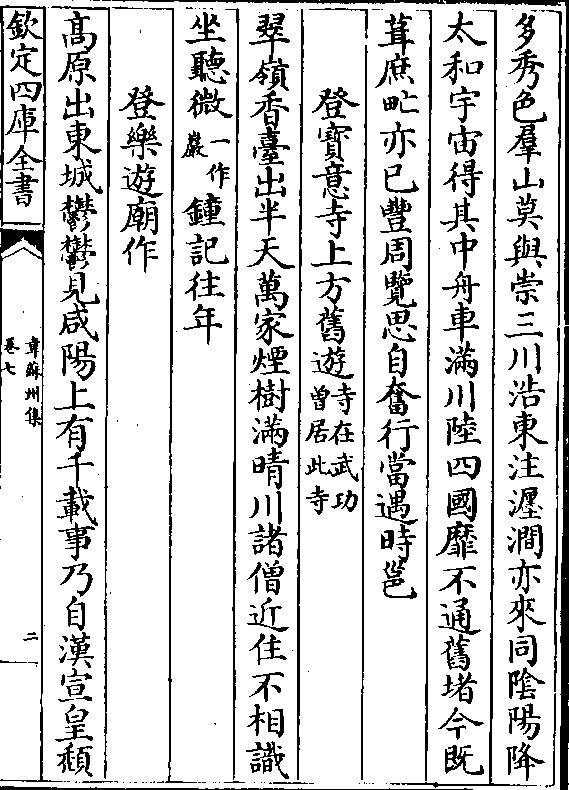 多秀色羣山莫與崇三川浩東注瀍澗亦來同隂陽降
太和宇宙得其中舟車滿川陸四國靡不通舊堵今既
葺庶甿亦已豐周覽思自奮行當遇時邕
登寳意寺上方舊遊寺在武功曾居此寺
翠嶺香臺出半天萬家煙樹滿晴川諸僧近住不相識
坐聽微一作巖鐘記往年
登樂遊廟作
髙原出東城鬱鬱見咸陽上有千載事乃自漢宣皇頹
欽定四庫全書
韋蘇州集
卷七
二